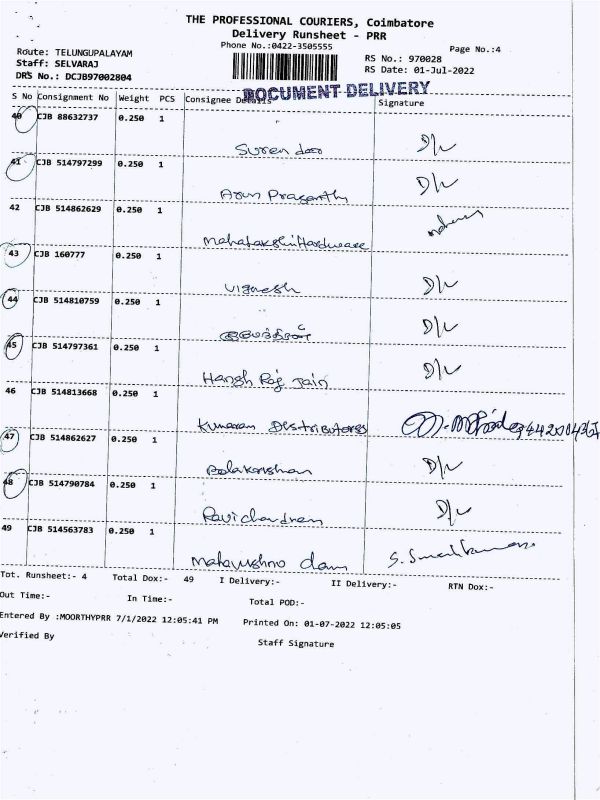 THE PROFESSIONAL COURIERS, Coimbatore
Delivery Runsheet - PRR
Phone No.:0422-3505555
Page No.:4
Route: TELUNGUPALAYAM
Staff: SELVARAJ
DRS No.: DCJB97002804
RS No.: 970028
RS Date: 01-Jul-2022
DOCUMENT DELIVERY
S No Consignment No Weight PCS Consignee Details Signature
40 CJB 88632737 0.250 1
D/L
41 CJB 514797299 0.250 1
Arun Prasanth D/L
42 CJB 514862629 0.250 1
Mahalakshi Hardware
43 CJB 160777 0.250 1
Vignesh D/L
44 CJB 514810759 0.250 1
D/L
45 CJB 514797361 0.250 1
Hansh Raj Jain D/L
46 CJB 514813668 0.250 1
Kumaran Distributors
47 CJB 514862627 0.250 1
Balakrishnan D/L
48 CJB 514790784 0.250 1
Ravichandran D/L
49 CJB 514563783 0.250 1
Tot. Runsheet:- 4 Total Dox:- 49 I Delivery:- II Delivery:- RTN Dox:-
Out Time:- In Time:- Total POD:-
Entered By :MOORTHYPRR 7/1/2022 12:05:41 PM Printed On: 01-07-2022 12:05:05
Verified By Staff Signature